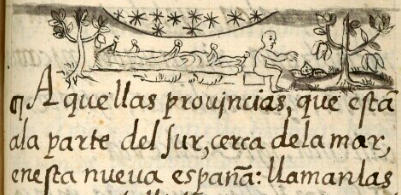 ¶ A quellas prouincias, que estã
ala parte del sur, cerca dela mar,
enesta nueua españa: llamanlas